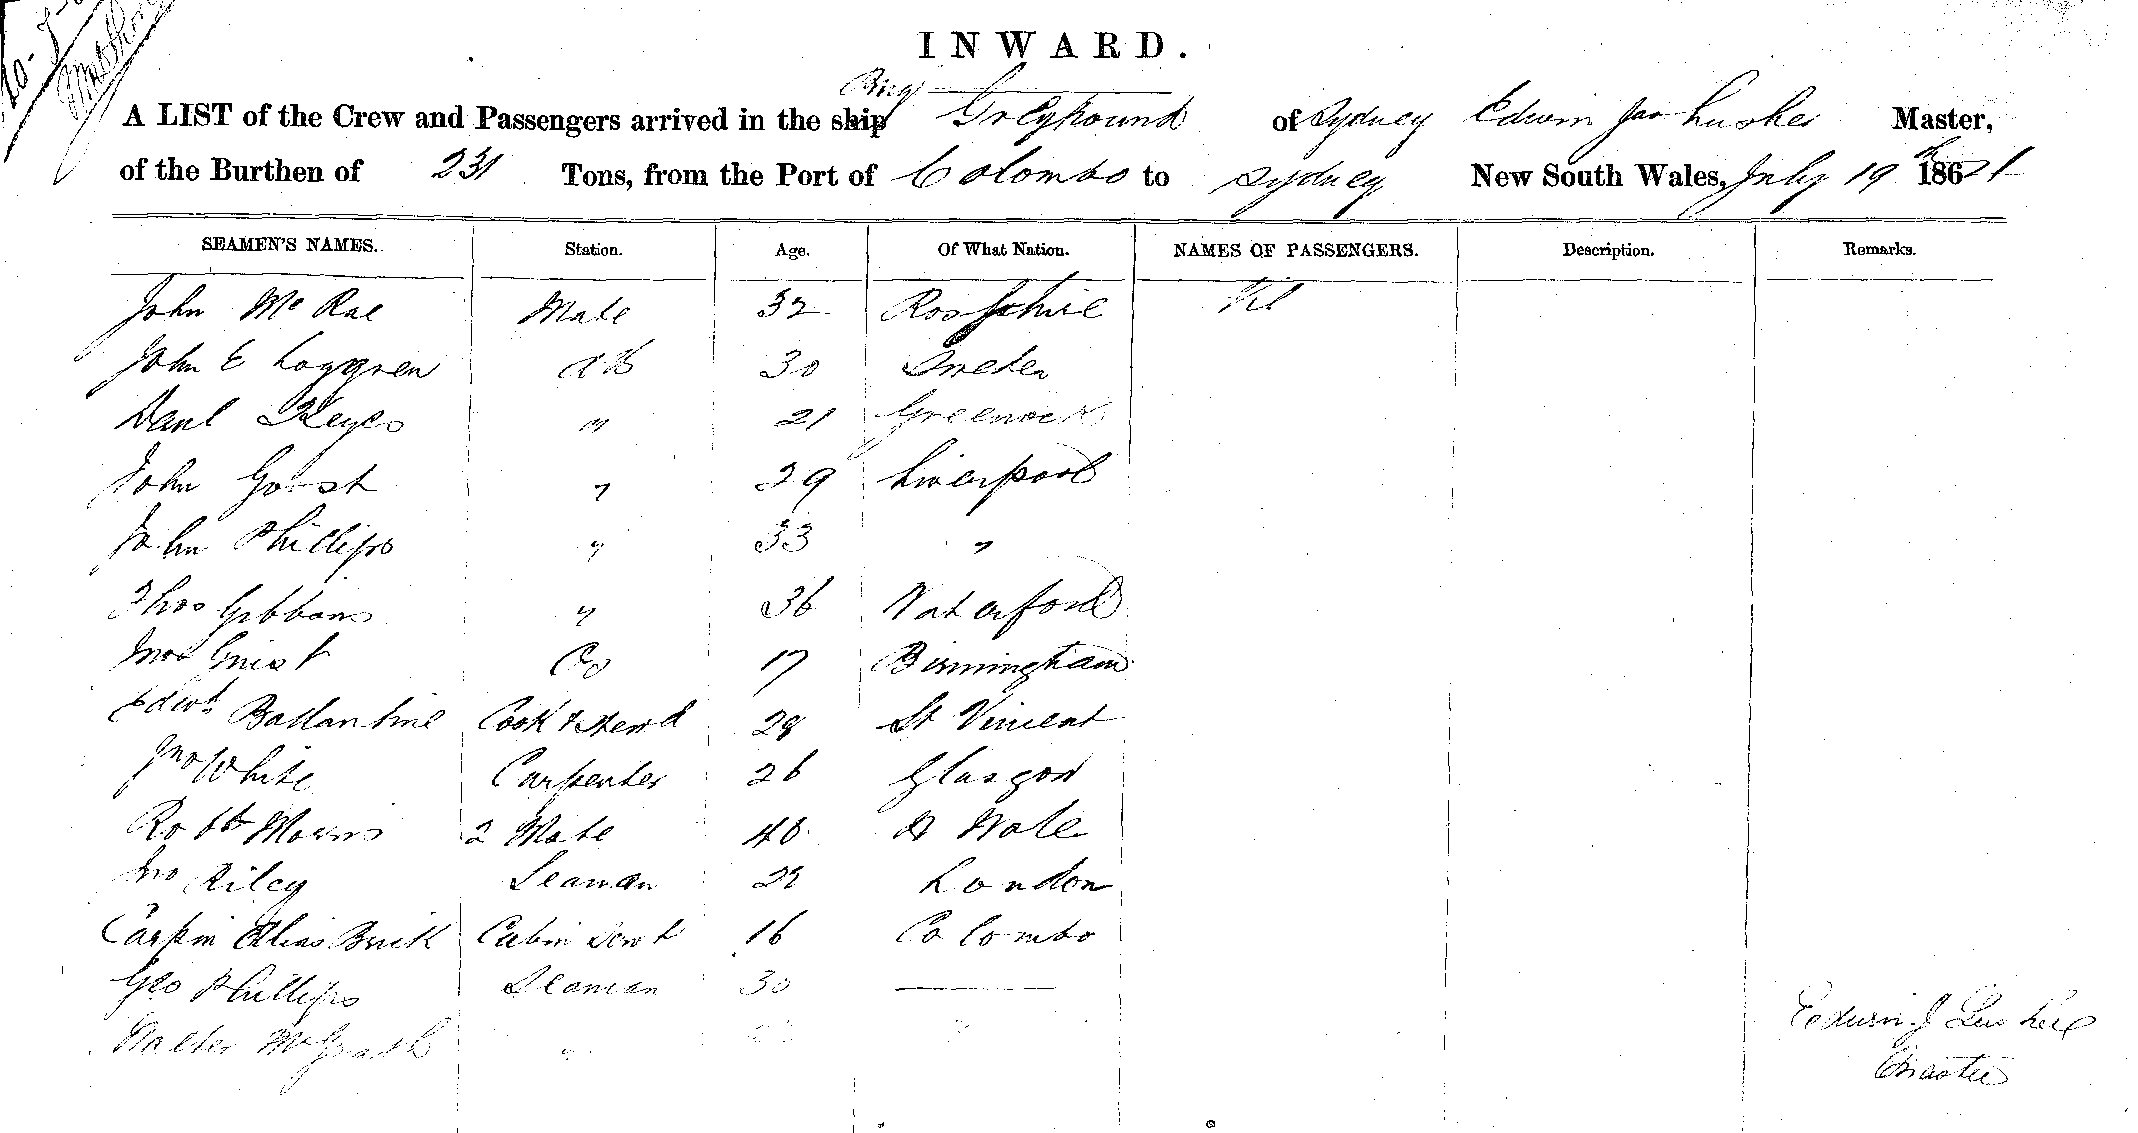 INWARD.
A LIST of the Crew and Passengers arrived in the ship Brig Greyhound of Sydney Edwin Jas Lusher Master,
of the Burthen of 231 Tons, from the Port of Colombo to Sydney New South Wales, July 19th 1871
SEAMEN'S NAMES. Station. Age. Of What Nation. NAMES OF PASSENGERS. Description. Remarks.
John McRae Mate 32 Rossshire Nil
John E Loggren AB 30 Sweden
Danl Keyes " 21 Greenock
John Gorst " 29 Liverpool
John Phillips " 33 "
Thos Gibbons " 36 Waterford
Guest 17 Birmingham
Edwd Ballantine Cook & Stewd 28 St Vincent
Jno White Carpenter 26 Glasgow
Robt Morris 2 Mate 46 N Wales
Jno Riley Seaman 22 London
Cabin Servt 16 Colombo
Geo Phillips Seaman 30 —
Walter McGrath "
Edwin J Lusher
Master